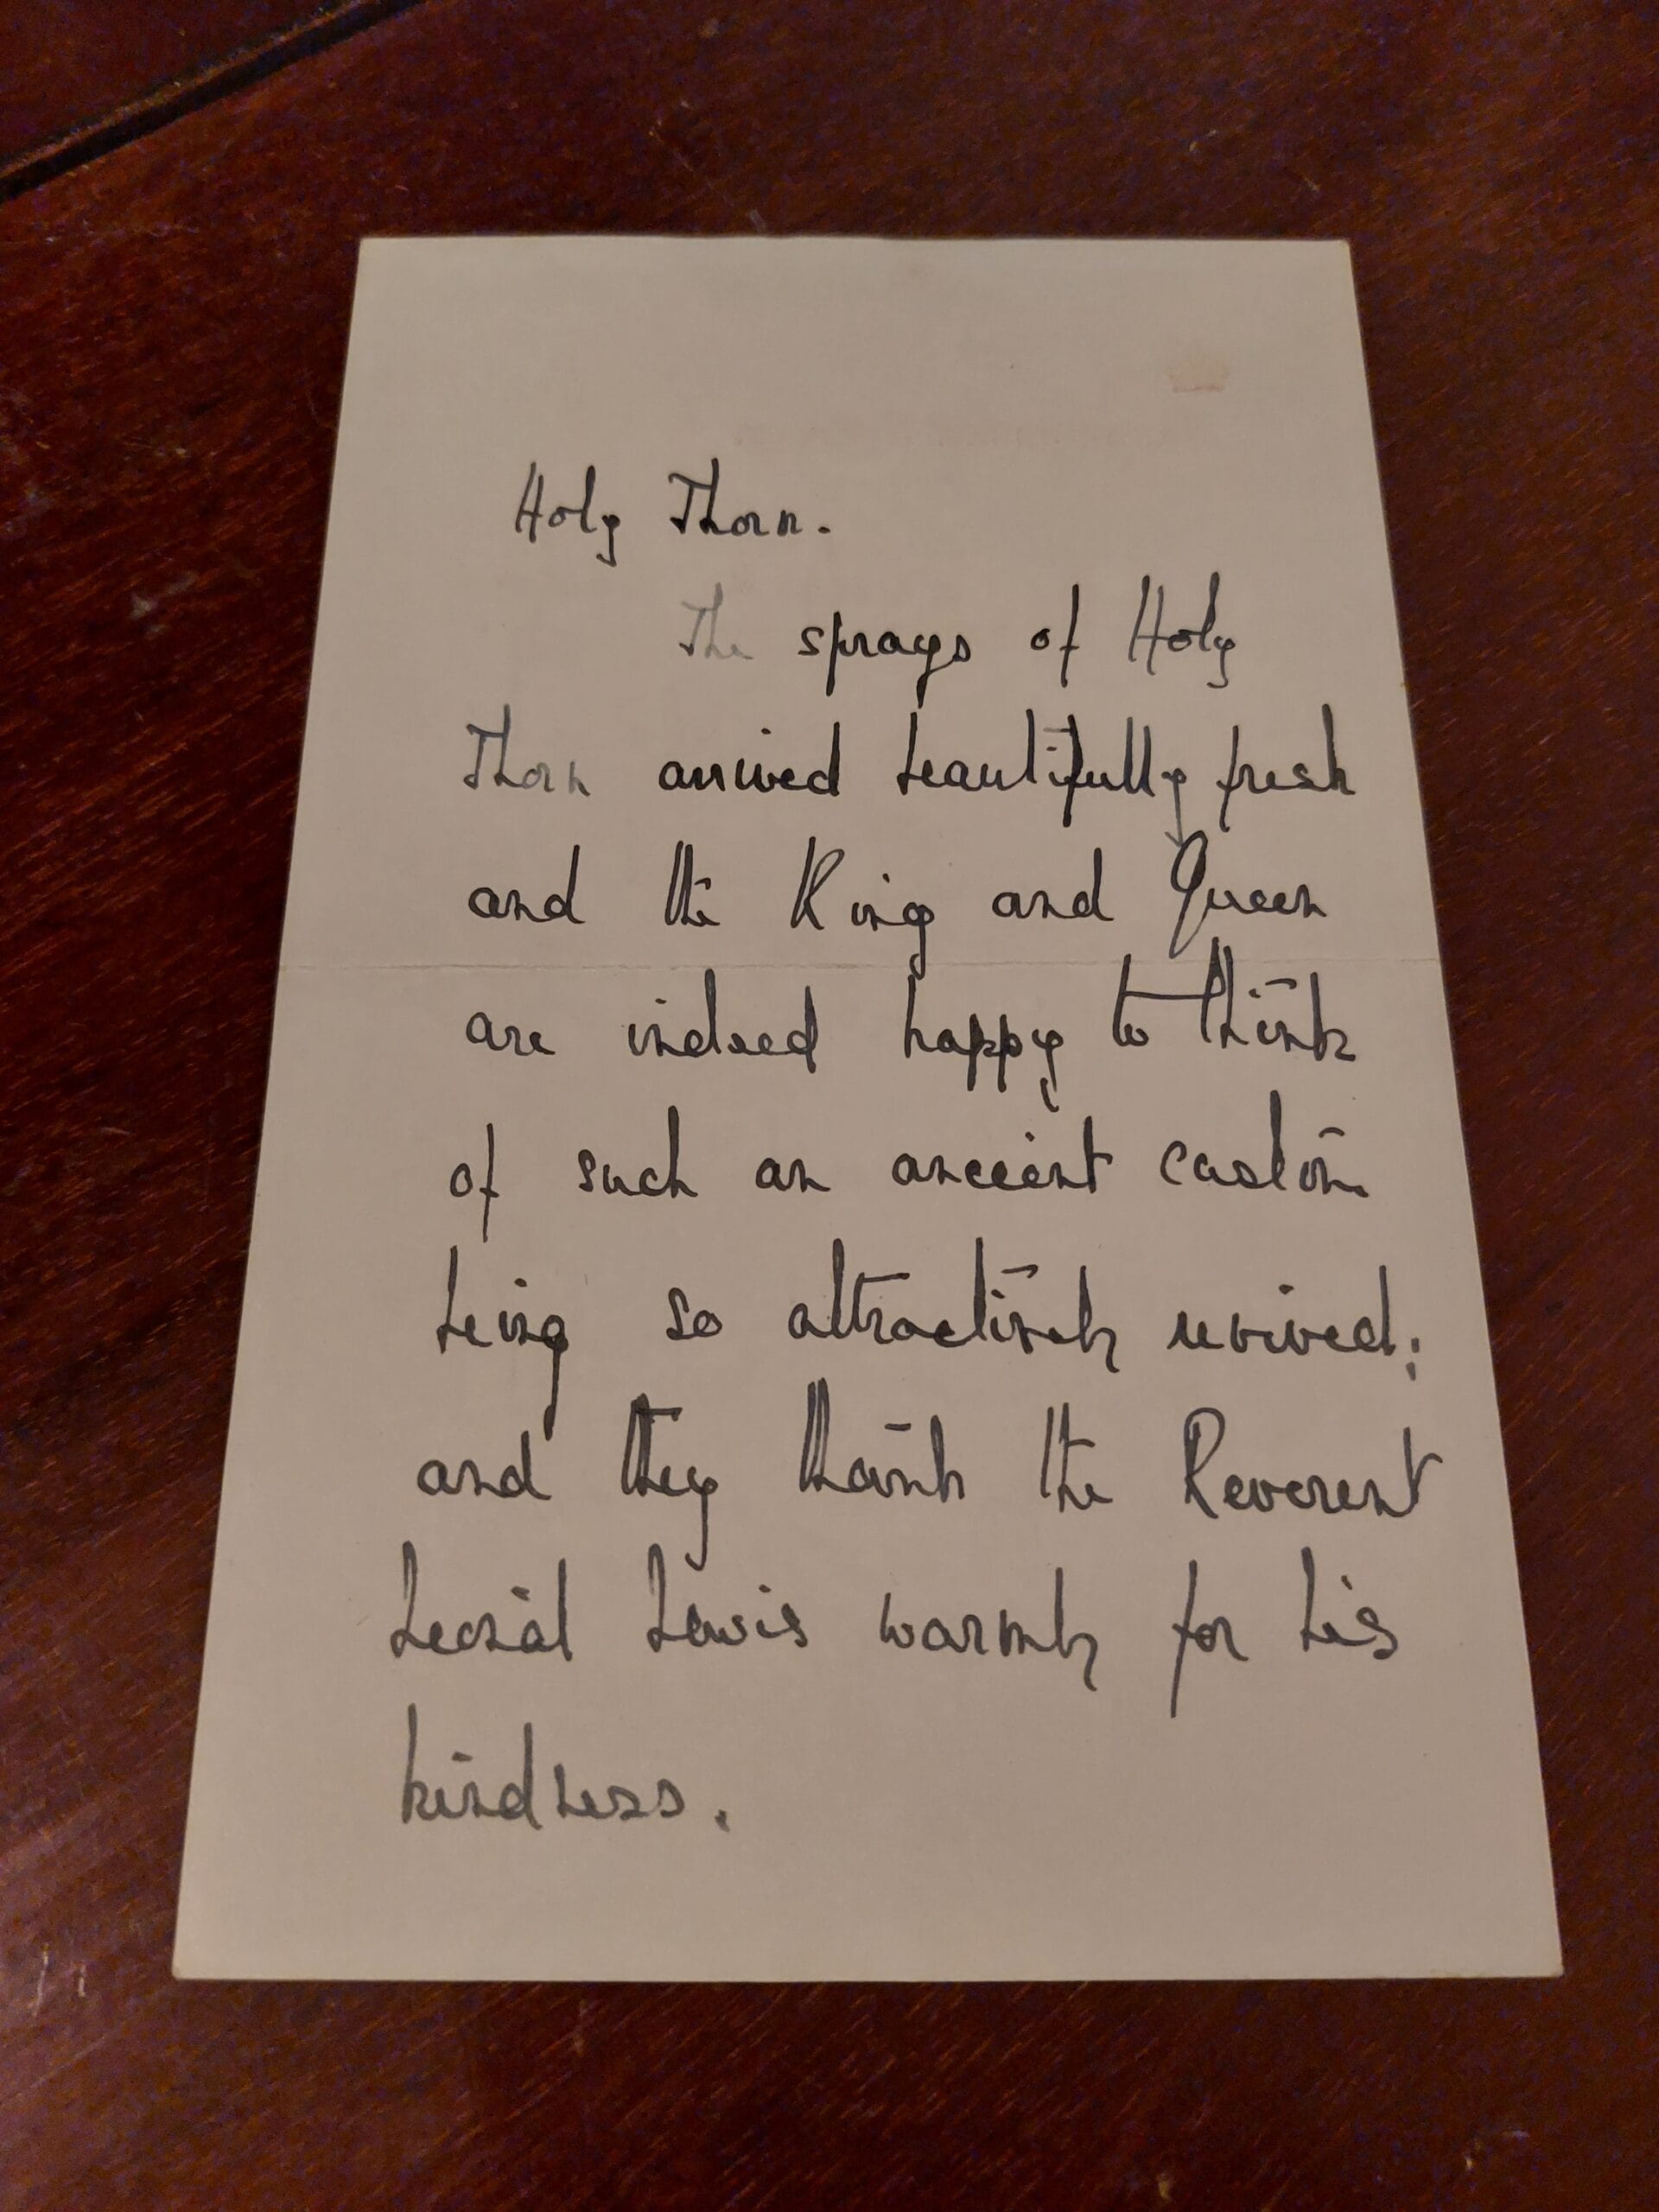 Holy Thorn.
The sprays of Holy
Thorn arrived beautifully fresh
and the King and Queen
are indeed happy to think
of such an ancient custom
being so attractively revived;
and they thank the Reverent
Lionel Lewis warmly for his
kindness.